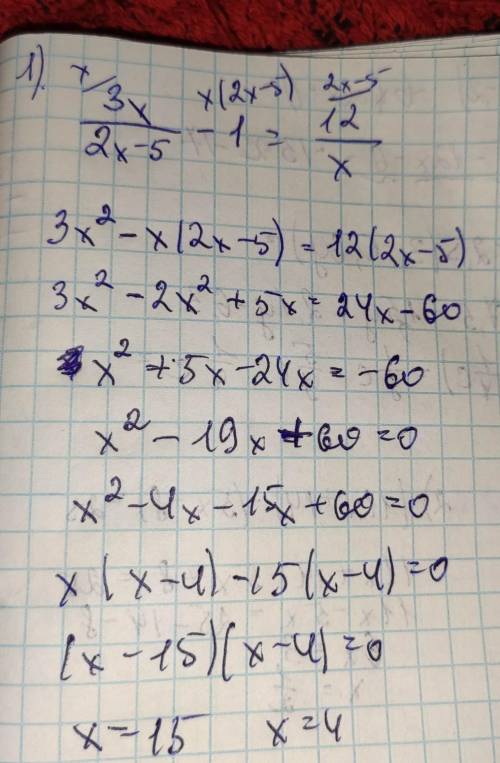 1). x/ 3x/(2x-5) x(2x-5) - 1 = 2x-5/ 12/x
3x² - x(2x-5) = 12(2x-5)
3x² - 2x² + 5x = 24x - 60
x² + 5x - 24x = -60
x² - 19x + 60 = 0
x² - 4x - 15x + 60 = 0
x(x-4) - 15(x-4) = 0
(x-15)(x-4) = 0
x = 15 x = 4